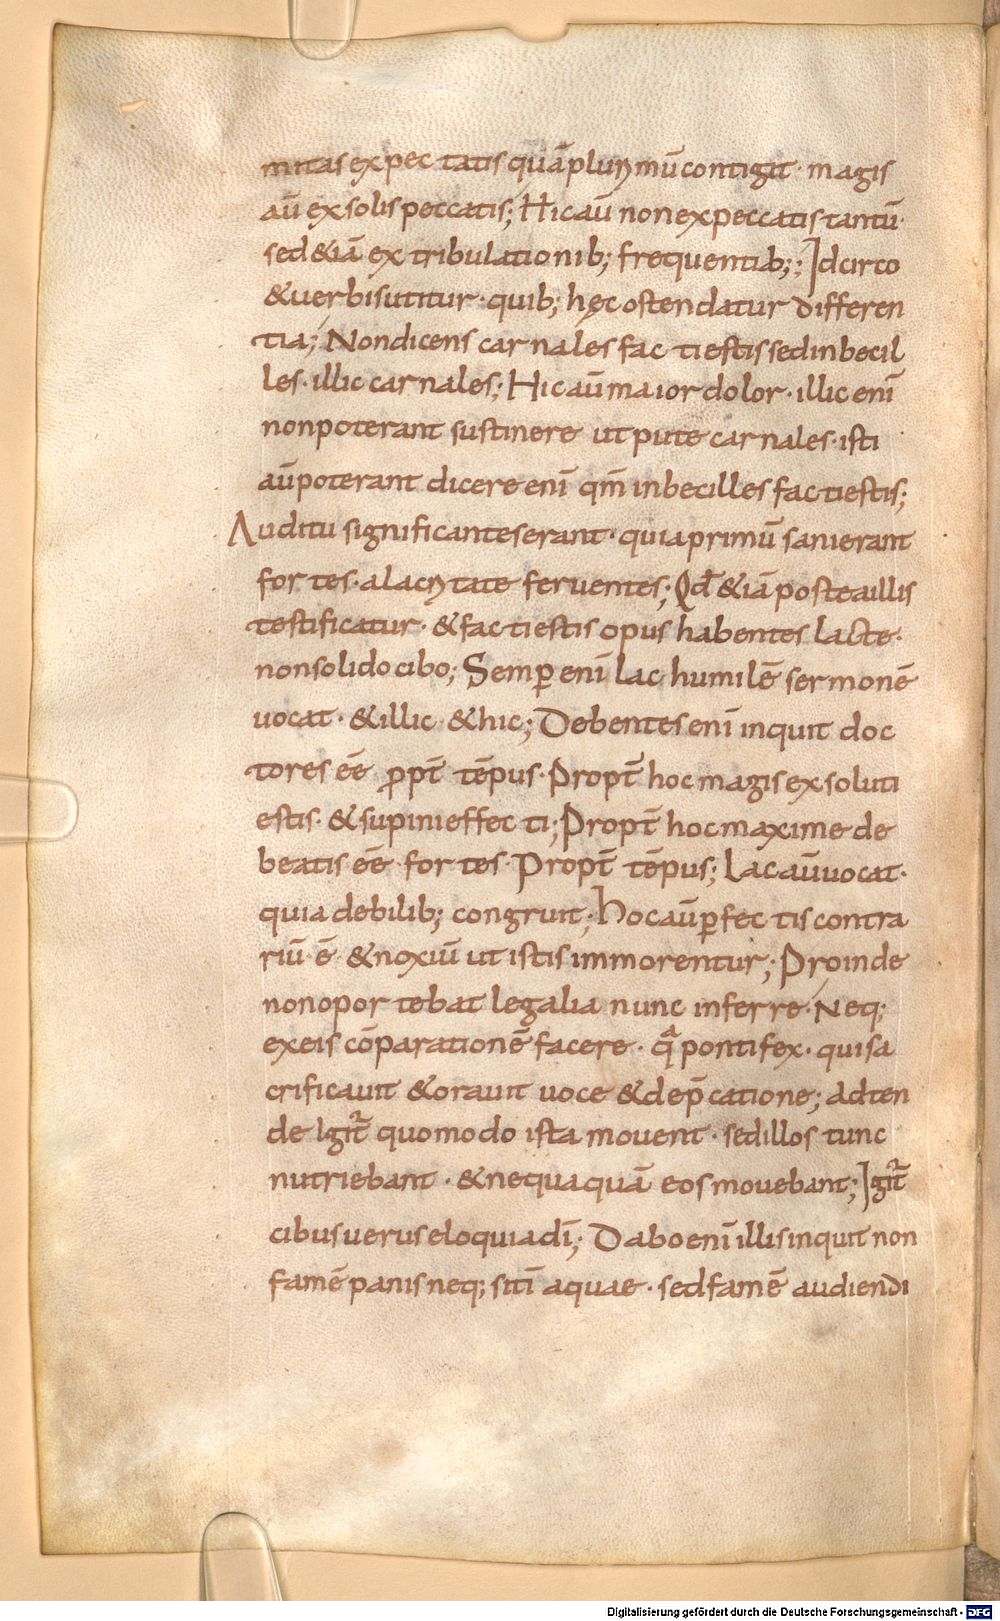 mitas ex peccatis quā plurimū contigit · magis
aū ex solis peccatis; Hic aū non ex peccatis tantū·
sed &iā ex tribulationib; frequentib;; Idcirco
& uerbis utitur · quib; hęc ostendatur differen
tia; Non dicens carnales facti estis sed inbecil
les · illic carnales; Hic aū maior dolor · illic enī
non poterant sustinere utpute carnales · isti
aū poterant dicere enī qm̄ inbecilles facti estis;
Auditu significantes erant · quia primū sani erant
fortes · alacritate feruentes; Qd̄ &iā postea illis
testificatur · & facti estis opus habentes lacte·
non solido cibo; Semp enī lac humilē sermonē
uocat · & illic & hic; Debentes enī inquit doc
tores eē ꝓpt̄ tēpus · Propt̄ hoc magis exsoluti
estis · & supini effecti; Propt̄ hoc maxime de
beatis eē fortes · Propt̄ tēpus; Lac aū uocat·
quia debilib; congruit; Hoc aū ꝑfectis contra
riū · ē & noxiū ut istis immorentur; Proinde
non oportebat legalia nunc inferre · Neq;
ex eis cōparationē facere · qͣ pontifex · qui sa
crificauit & orauit uoce & dep̄catione; Adten
de Igit̄ quomodo ista mouent · sed illos tunc
nutriebant · & nequaquā eos mouebant; Igit̄
cibus uerus eloquia dī; Dabo enī illis inquit non
famē panis neq; sitī aquae · sed famē audiendi
Digitalisierung gefördert durch die Deutsche Forschungsgemeinschaft - DFG